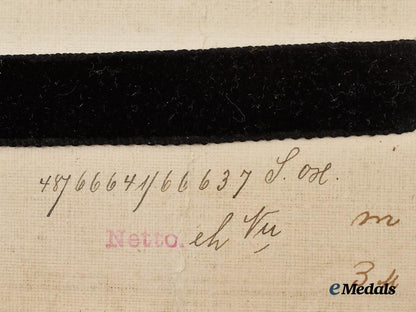 48/66641/66637 S. ox.
Netto. eh Vu,
m
3
eMedals